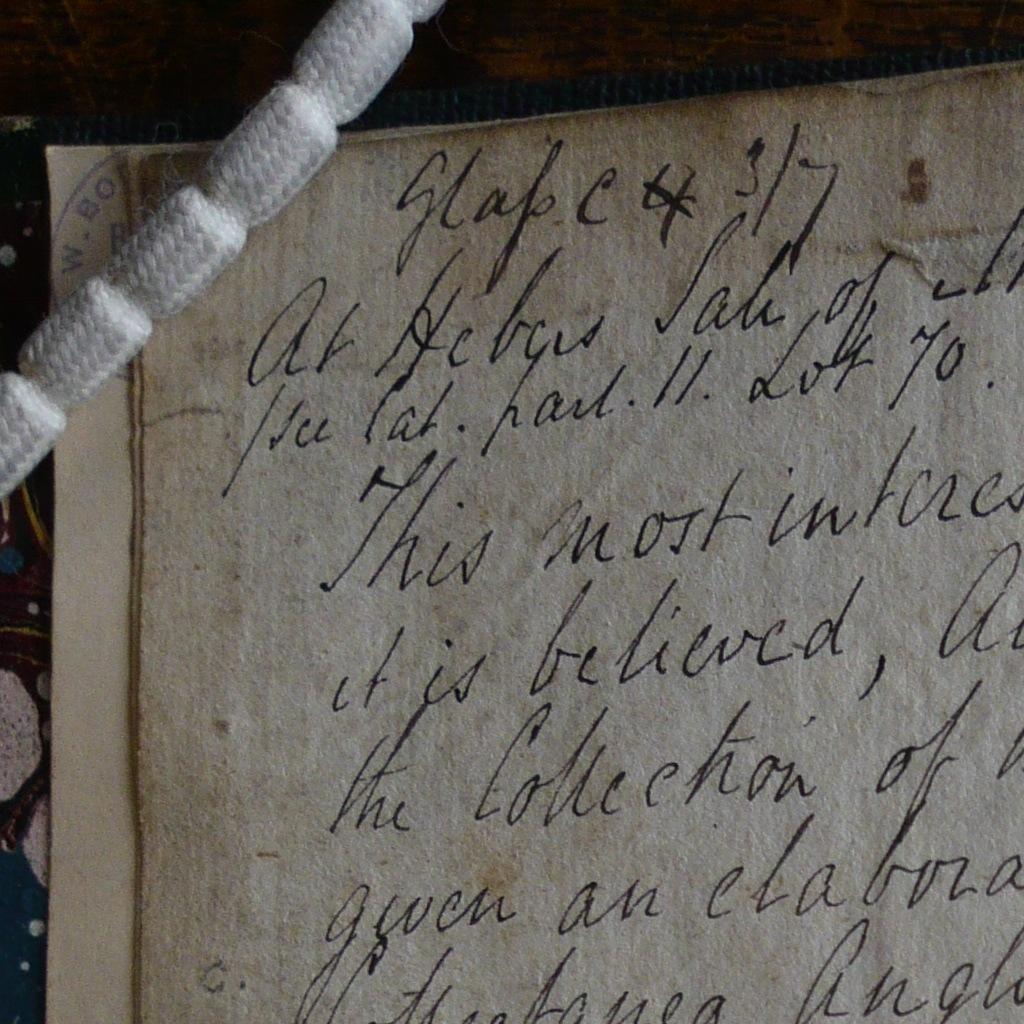 W. BO
Glaſs C 4 3/7
At Hebers Sale of
see Cat. part. 11. Lot 70.
This most interes
it is believed, Au
the Collection of
given an elabora
c.
Collectanea Anglo